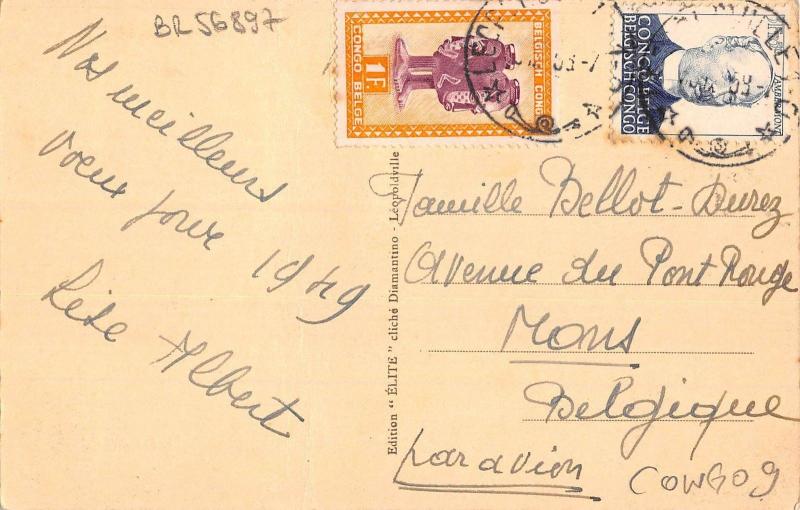 BR56897
Nos meilleurs
voeux pour 1949
Albert
BELGISCH CONGO
1F.
CONGO BELGE
CONGO BELGE
BELGISCH-CONGO
LAMBERMONT
Famille Bellot-Durez
Avenue du Pont Rouge
Mons
Belgique
par avion
CONGO 9
Edition "ÉLITE" cliché Diamantino - Léopoldville